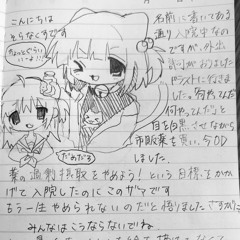 こんにちは
そらなくすです
ちょっとぐらい
いーよ!!
だめだろ
名前に書いてある
通り入院中なの
ですが、外出
許可がおりまし
たやストに行きま
した。何やって
何やってんだと
目を白黒させながら
市販薬を買い、今OD
しました。
薬の過剰摂取をやめよう!という目標をかか
げて入院したのにこのザマです
もう一生やめられないのだと悟りましたさすがに
みんなはこうならないでね